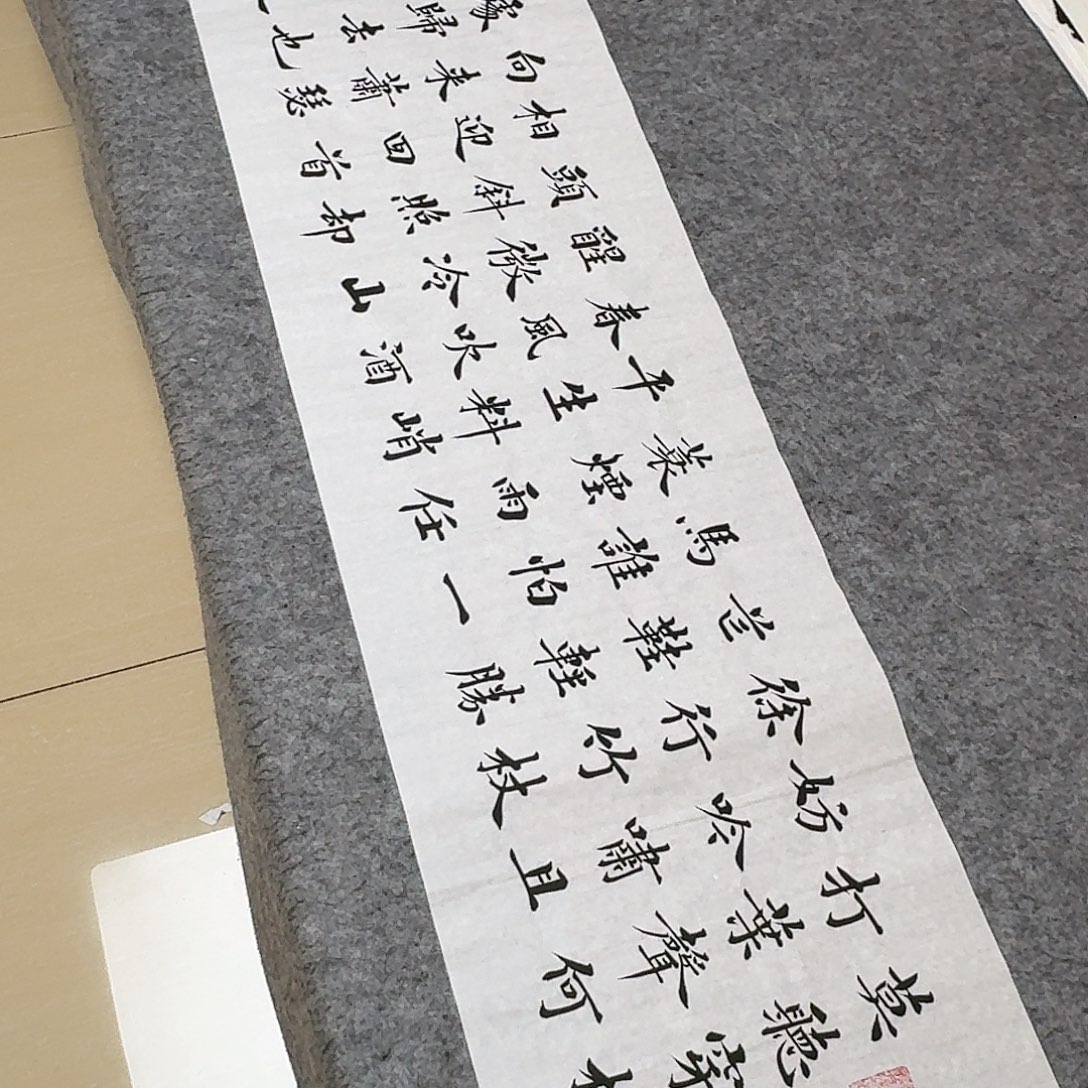 莫聽穿
打葉聲何
妨吟嘯且
徐行竹杖
芒鞋輕勝
馬誰怕一
蓑煙雨任
平生料峭
春風吹酒
醒微冷山
頭斜照却
相迎回首
向来蕭瑟
處歸去也